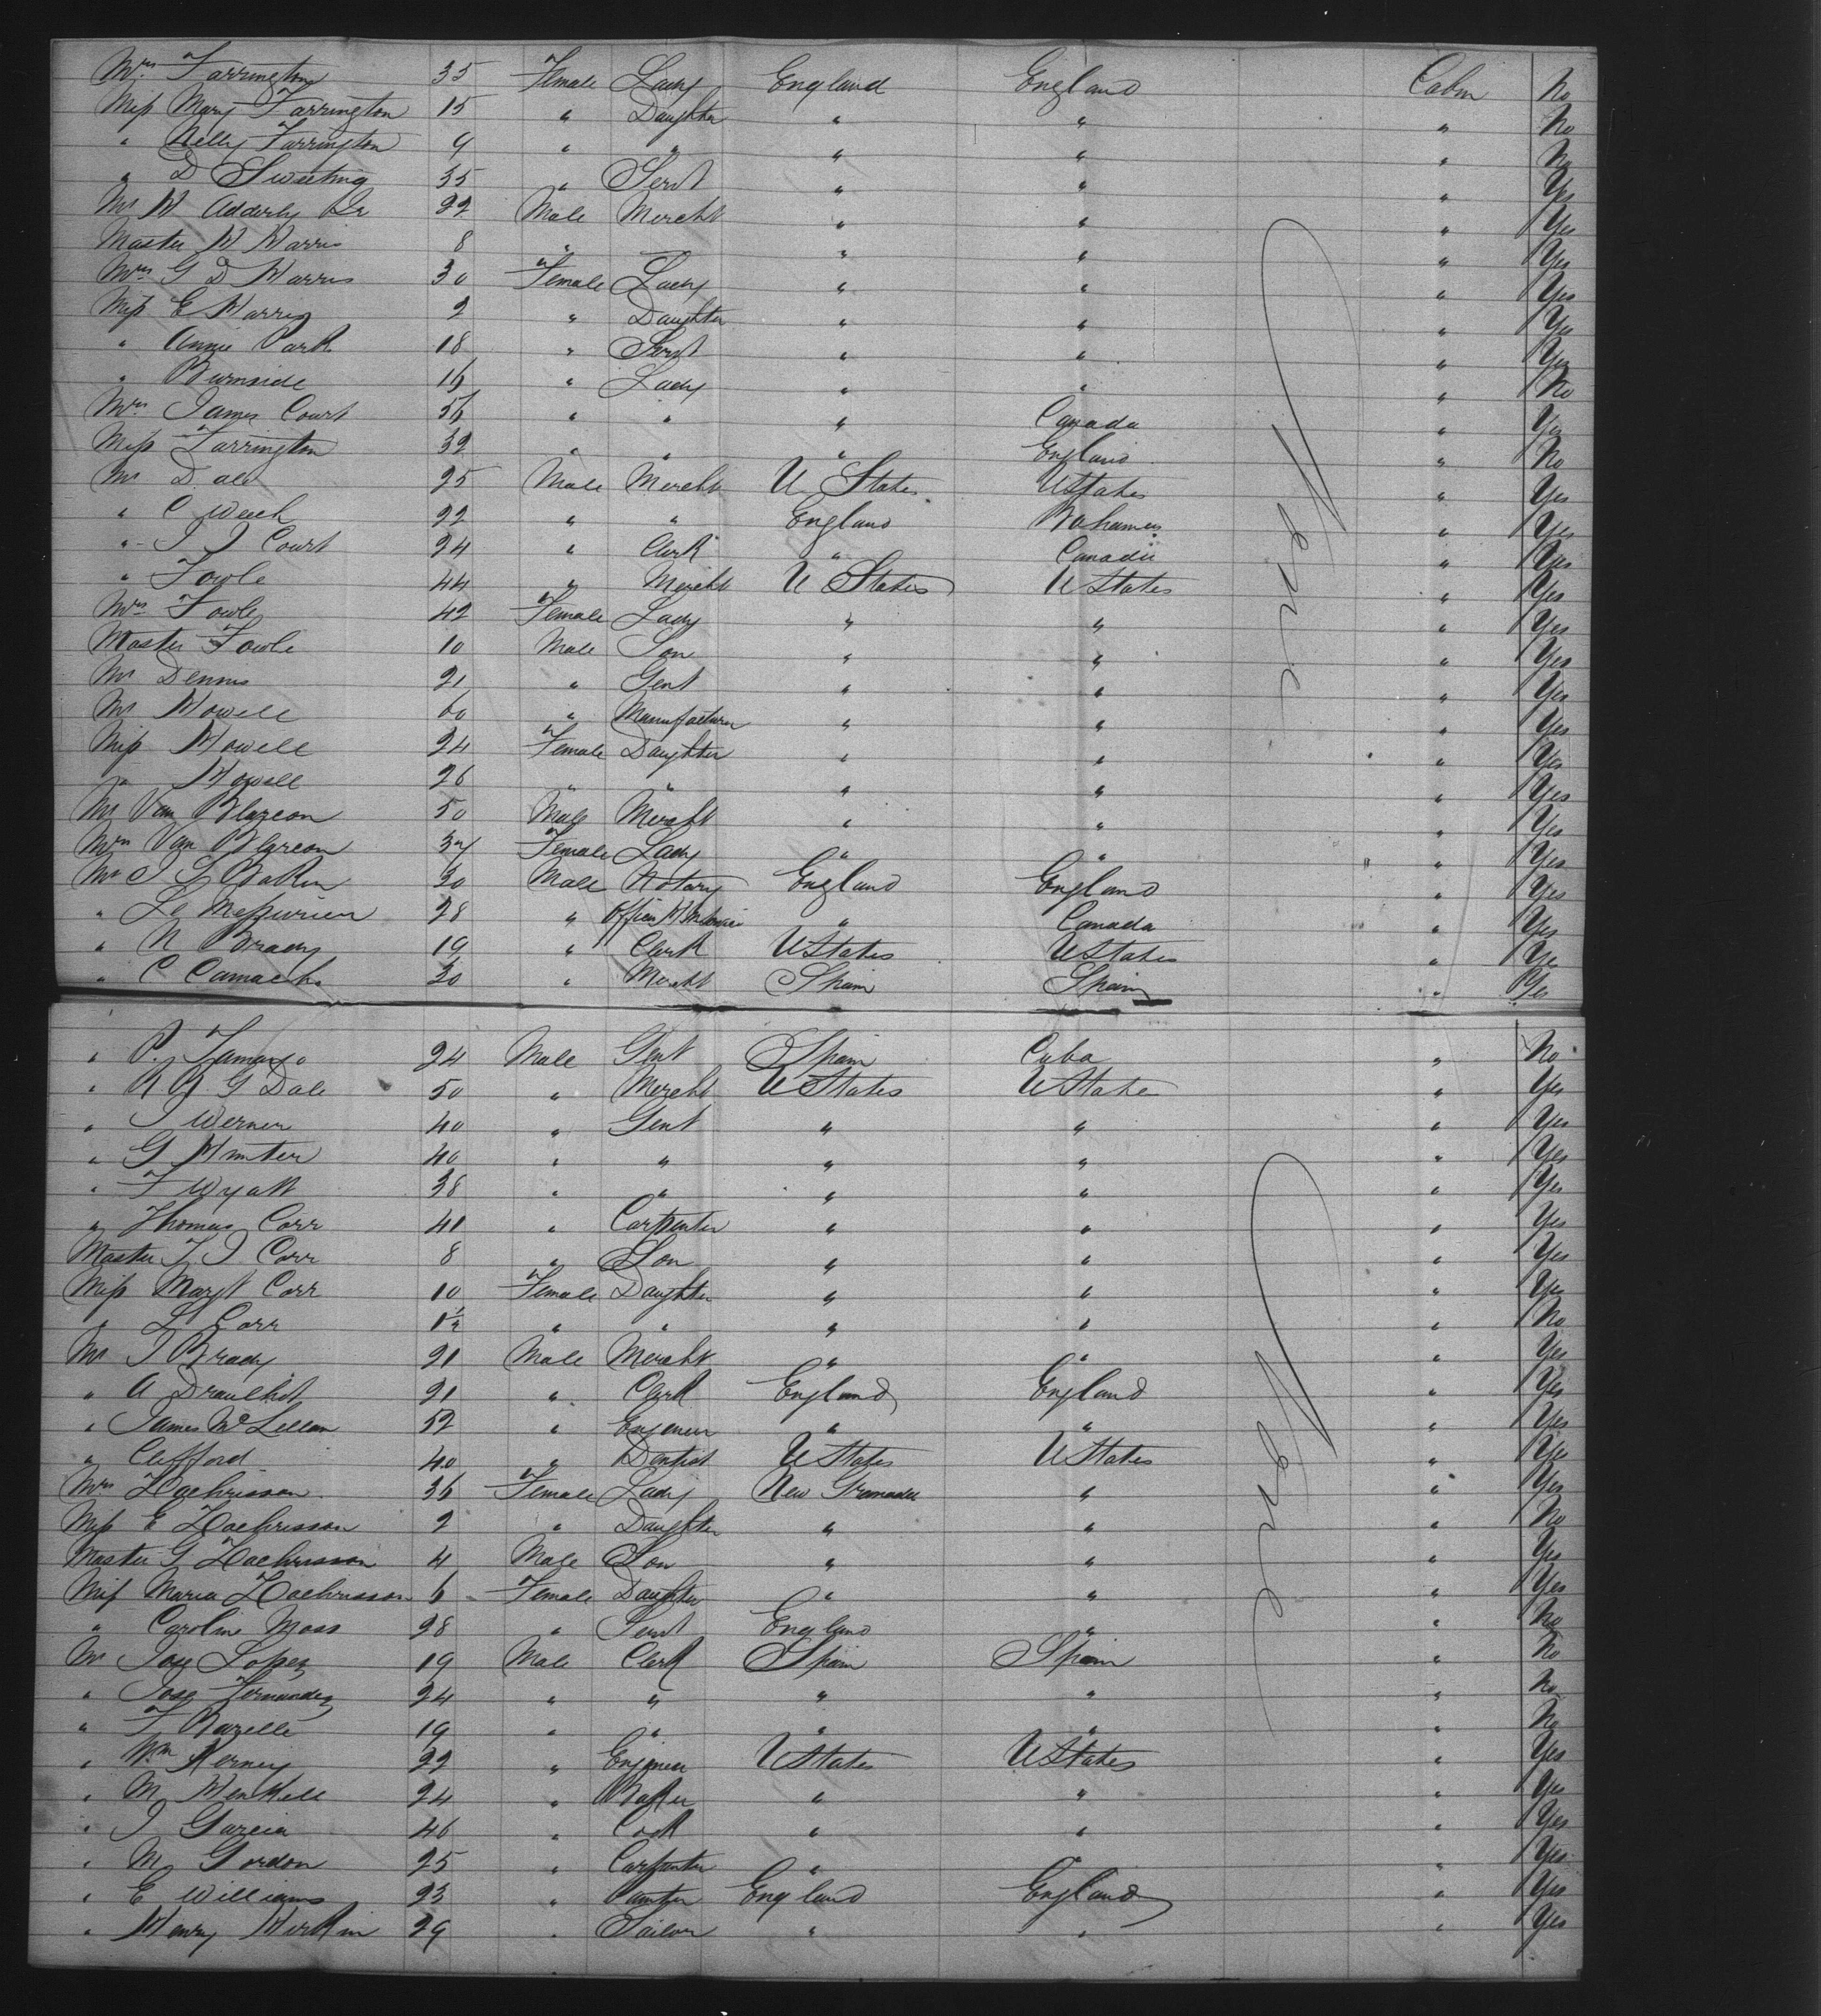 Mrs Farrington 35 Female Lady England England Cabin No
Miss Mary Farrington 15 " Daughter " " " No
" Nelly Farrington 9 " " " " " No
" D Sweeting 35 " Servt " " " Yes
Mr W Adderly 22 Male Mercht " " " Yes
Master W Harris 8 " " " " Yes
Mrs G D Harris 30 Female Lady " " " Yes
Miss E Harris 2 " Daughter " " " Yes
" Annie Park 18 " Servt " " " Yes
" Burnside 16 " Lady " " " No
Mrs James Court 56 " " " Canada " Yes
Miss Farrington 32 " " " England " No
Mr Dale 25 Male Mercht U States UStates " Yes
" C Weech 22 " " England Bahamas " Yes
" J J Court 24 " Clerk " Canada " Yes
" Fowle 44 " Mercht U States U States " Yes
Mrs Fowle 42 Female Lady " " " Yes
Master Fowle 10 Male Son " " " Yes
Mr Dennis 21 " Gent " " " Yes
Mr Howell 60 " Manufacturer " " " Yes
Miss Howell 24 Female Daughter " " " Yes
" Howell 26 " " " " " Yes
Mr Van Blarcon 50 Male Mercht " " " Yes
Mrs Van Blarcon 34 Female Lady " " " Yes
Mr J S Baker 30 Male Notary England England " Yes
" Le Messurier 28 " Officer " Canada " Yes
" N Brady 19 " Clerk UStates UStates " Ye
" C Camacho 30 " Mercht Spain Spain " Yes
" P. Tamargo 24 Male Gent Spain Cuba " No
" R R G Dale 50 " Mercht UStates UState " Yes
" J Werner 40 " Gent " " " Yes
" G Hunter 40 " " " " " Yes
" F Wyatt 38 " " " " " Yes
" Thomas Carr 41 " Carpenter " " " Yes
Master T. J. Carr 8 " Son " " " Yes
Miss Margt Carr 10 Female Daughter " " " Yes
" L Carr 1½ " " " " " No
Mr J Brady 21 Male Mercht " " " Yes
" A Draulhet 21 " Clerk England England " Yes
" James McLellan 52 " Engeneer " " " Yes
" Clifford 40 " Dentist U States U States " Yes
Mrs Zachrisson 36 Female Lady New Grenada " " Yes
Miss E Zachrisson 2 " Daughter " " " No
Master G Zachrisson 4 Male Son " " " Yes
Miss Maria Zachrisson 6 Female Daughter " " " Yes
" Caroline Moss 28 " Servt England " " No
Mr Jose Lopez 19 Male Clerk Spain Spain " No
" Jose Fernandez 24 " " " " " No
" F Barelle 19 " " " " " No
" Wm Kerney 22 " Engineer UStates UStates " Yes
" M Henkell 24 " Baker " " " Yes
" J Garcia 46 " Cook " " " Yes
" M Gordon 25 " Carpenter " " " Yes
" E Williams 23 " Painter England England " Yes
" Henry Muskin 29 " Sailor " " " Yes